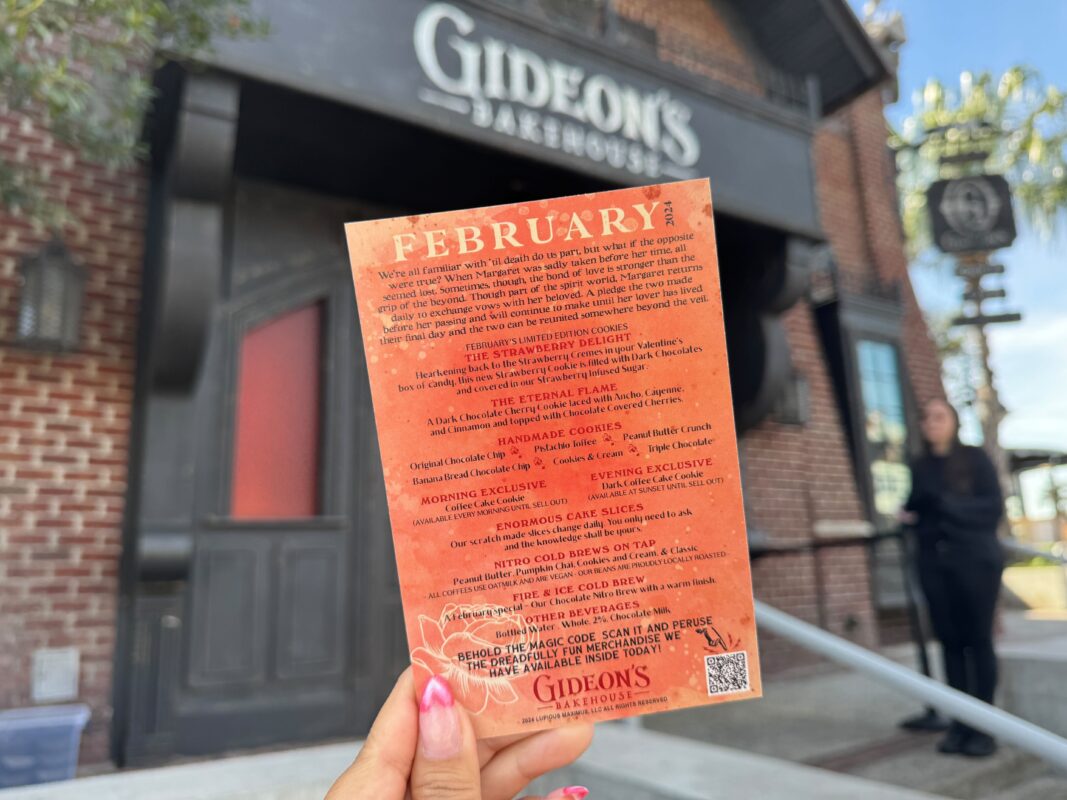 GIDEON'S
BAKEHOUSE
FEBRUARY 2024
We're all familiar with 'til death do us part, but what if the opposite
were true? When Margaret was sadly taken before her time, all
seemed lost. Sometimes, though, the bond of love is stronger than the
grip of the beyond. Though part of the spirit world, Margaret returns
daily to exchange vows with her beloved. A pledge the two made
before her passing and will continue to make until her lover has lived
their final day and the two can be reunited somewhere beyond the veil.
FEBRUARY'S LIMITED EDITION COOKIES
THE STRAWBERRY DELIGHT
Hearkening back to the Strawberry Cremes in your Valentine's
box of candy, this new Strawberry Cookie is filled with Dark Chocolates
and covered in our Strawberry Infused Sugar.
THE ETERNAL FLAME
A Dark Chocolate Cherry Cookie laced with Ancho, Cayenne,
and Cinnamon and topped with Chocolate Covered Cherries.
HANDMADE COOKIES
Original Chocolate Chip Pistachio Toffee Peanut Butter Crunch
Banana Bread Chocolate Chip Cookies & Cream Triple Chocolate
MORNING EXCLUSIVE
Coffee Cake Cookie
(AVAILABLE EVERY MORNING UNTIL SELL OUT)
EVENING EXCLUSIVE
Dark Coffee Cake Cookie
(AVAILABLE AT SUNSET UNTIL SELL OUT)
ENORMOUS CAKE SLICES
Our scratch made slices change daily. You only need to ask
and the knowledge shall be yours.
NITRO COLD BREWS ON TAP
Peanut Butter, Pumpkin Chai, Cookies and Cream, & Classic
- ALL COFFEES USE OATMILK AND ARE VEGAN - OUR BEANS ARE PROUDLY LOCALLY ROASTED -
FIRE & ICE COLD BREW
A February special - Our Chocolate Nitro Brew with a warm finish.
OTHER BEVERAGES
Bottled Water - Whole, 2%, Chocolate Milk
BEHOLD THE MAGIC CODE SCAN IT AND PERUSE
THE DREADFULLY FUN MERCHANDISE WE
HAVE AVAILABLE INSIDE TODAY!
GIDEON'S
BAKEHOUSE
- 2024 LUPIOUS MAXIMUS, LLC ALL RIGHTS RESERVED